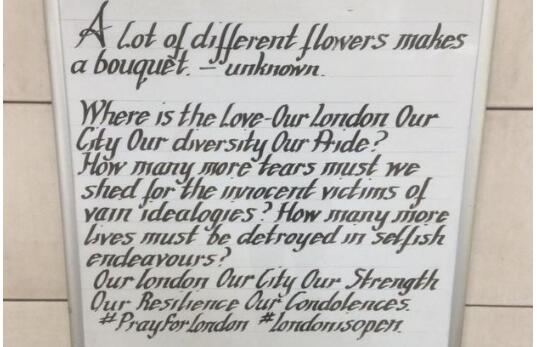 A lot of different flowers makes
a bouquet. – unknown.
Where is the Love-Our London Our
City Our diversity Our Pride?
How many more tears must we
shed for the innocent victims of
vain idealogies? How many more
lives must be detroyed in selfish
endeavours?
Our london Our City Our Strength
Our Resilience Our Condolences.
#PrayForLondon #londonisopen.